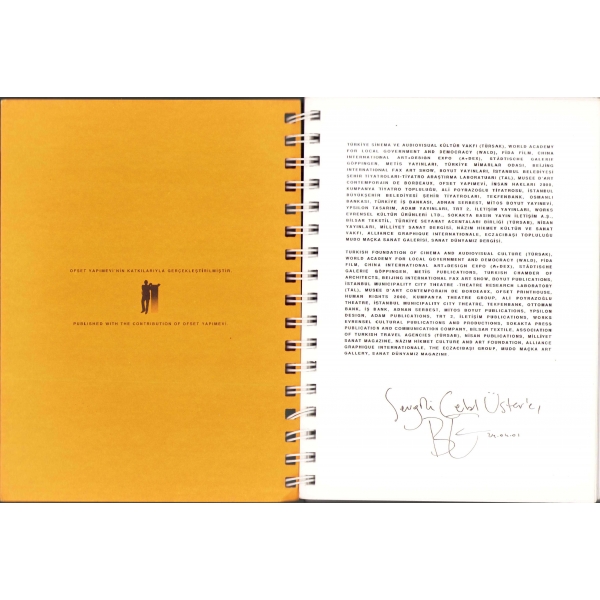 OFSET YAPIMEVİ'NİN KATKILARIYLA GERÇEKLEŞTİRİLMİŞTİR.
PUBLISHED WITH THE CONTRIBUTION OF OFSET YAPIMEVİ.
TÜRKİYE SİNEMA VE AUDIOVISUAL KÜLTÜR VAKFI (TÜRSAK), WORLD ACADEMY
FOR LOCAL GOVERNMENT AND DEMOCRACY (WALD), FIDA FILM, CHINA
INTERNATIONAL ART+DESIGN EXPO (A+DEX), STÄDTISCHE GALERIE
GÖPPINGEN, METİS YAYINLARI, TÜRKİYE MİMARLAR ODASI, BEIJING
INTERNATIONAL FAX ART SHOW, BOYUT YAYINLARI, İSTANBUL BELEDİYESİ
ŞEHİR TİYATROLARI-TİYATRO ARAŞTIRMA LABORATUARI (TAL), MUSEE D'ART
CONTEMPORAIN DE BORDEAUX, OFSET YAPIMEVİ, İNSAN HAKLARI 2000,
KUMPANYA TİYATRO TOPLULUĞU, ALİ POYRAZOĞLU TİYATROSU, İSTANBUL
BÜYÜKŞEHİR BELEDİYESİ ŞEHİR TİYATROLARI, TEKFENBANK, OSMANLI
BANKASI, TÜRKİYE İŞ BANKASI, ADNAN SERBEST, MİTOS BOYUT YAYINEVİ,
YPSILON TASARIM, ADAM YAYINLARI, TRT 2, İLETİŞİM YAYINLARI, WORKS
EVRENSEL KÜLTÜR ÜRÜNLERİ LTD., SOKAKTA BASIN YAYIN İLETİŞİM A.Ş.,
BİLSAR TEKSTİL, TÜRKİYE SEYAHAT ACENTALARI BİRLİĞİ (TÜRSAB), NİSAN
YAYINLARI, MİLLİYET SANAT DERGİSİ, NAZIM HİKMET KÜLTÜR VE SANAT
VAKFI, ALLIANCE GRAPHIQUE INTERNATIONALE, ECZACIBAŞI TOPLULUĞU
MUDO MAÇKA SANAT GALERİSİ, SANAT DÜNYAMIZ DERGİSİ.
TURKISH FOUNDATION OF CINEMA AND AUDIOVISUAL CULTURE (TÜRSAK),
WORLD ACADEMY FOR LOCAL GOVERNMENT AND DEMOCRACY (WALD), FIDA
FILM, CHINA INTERNATIONAL ART+DESIGN EXPO (A+DEX), STÄDTISCHE
GALERIE GÖPPINGEN, METİS PUBLICATIONS, TURKISH CHAMBER OF
ARCHITECTS, BEIJING INTERNATIONAL FAX ART SHOW, BOYUT PUBLICATIONS,
İSTANBUL MUNICIPALITY CITY THEATRE -THEATRE RESEARCH LABORATORY
(TAL), MUSEE D'ART CONTEMPORAIN DE BORDEAUX, OFSET PRINTHOUSE,
HUMAN RIGHTS 2000, KUMPANYA THEATRE GROUP, ALİ POYRAZOĞLU
THEATRE, İSTANBUL MUNICIPALITY CITY THEATRE, TEKFENBANK, OTTOMAN
BANK, İŞ BANK, ADNAN SERBEST, MITOS BOYUT PUBLICATIONS, YPSILON
DESIGN, ADAM PUBLICATIONS, TRT 2, İLETİŞİM PUBLICATIONS, WORKS
EVRENSEL CULTURAL PUBLICATIONS AND PRODUCTIONS, SOKAKTA PRESS
PUBLICATION AND COMMUNICATION COMPANY, BILSAR TEXTILE, ASSOCIATION
OF TURKISH TRAVEL AGENCIES (TÜRSAB), NİSAN PUBLICATIONS, MİLLİYET
SANAT MAGAZINE, NÂZIM HİKMET CULTURE AND ART FOUNDATION, ALLIANCE
GRAPHIQUE INTERNATIONALE, THE ECZACIBAŞI GROUP, MUDO MAÇKA ART
GALLERY, SANAT DÜNYAMIZ MAGAZINE.
Sevgili Celal Üster'e,
24.04.01